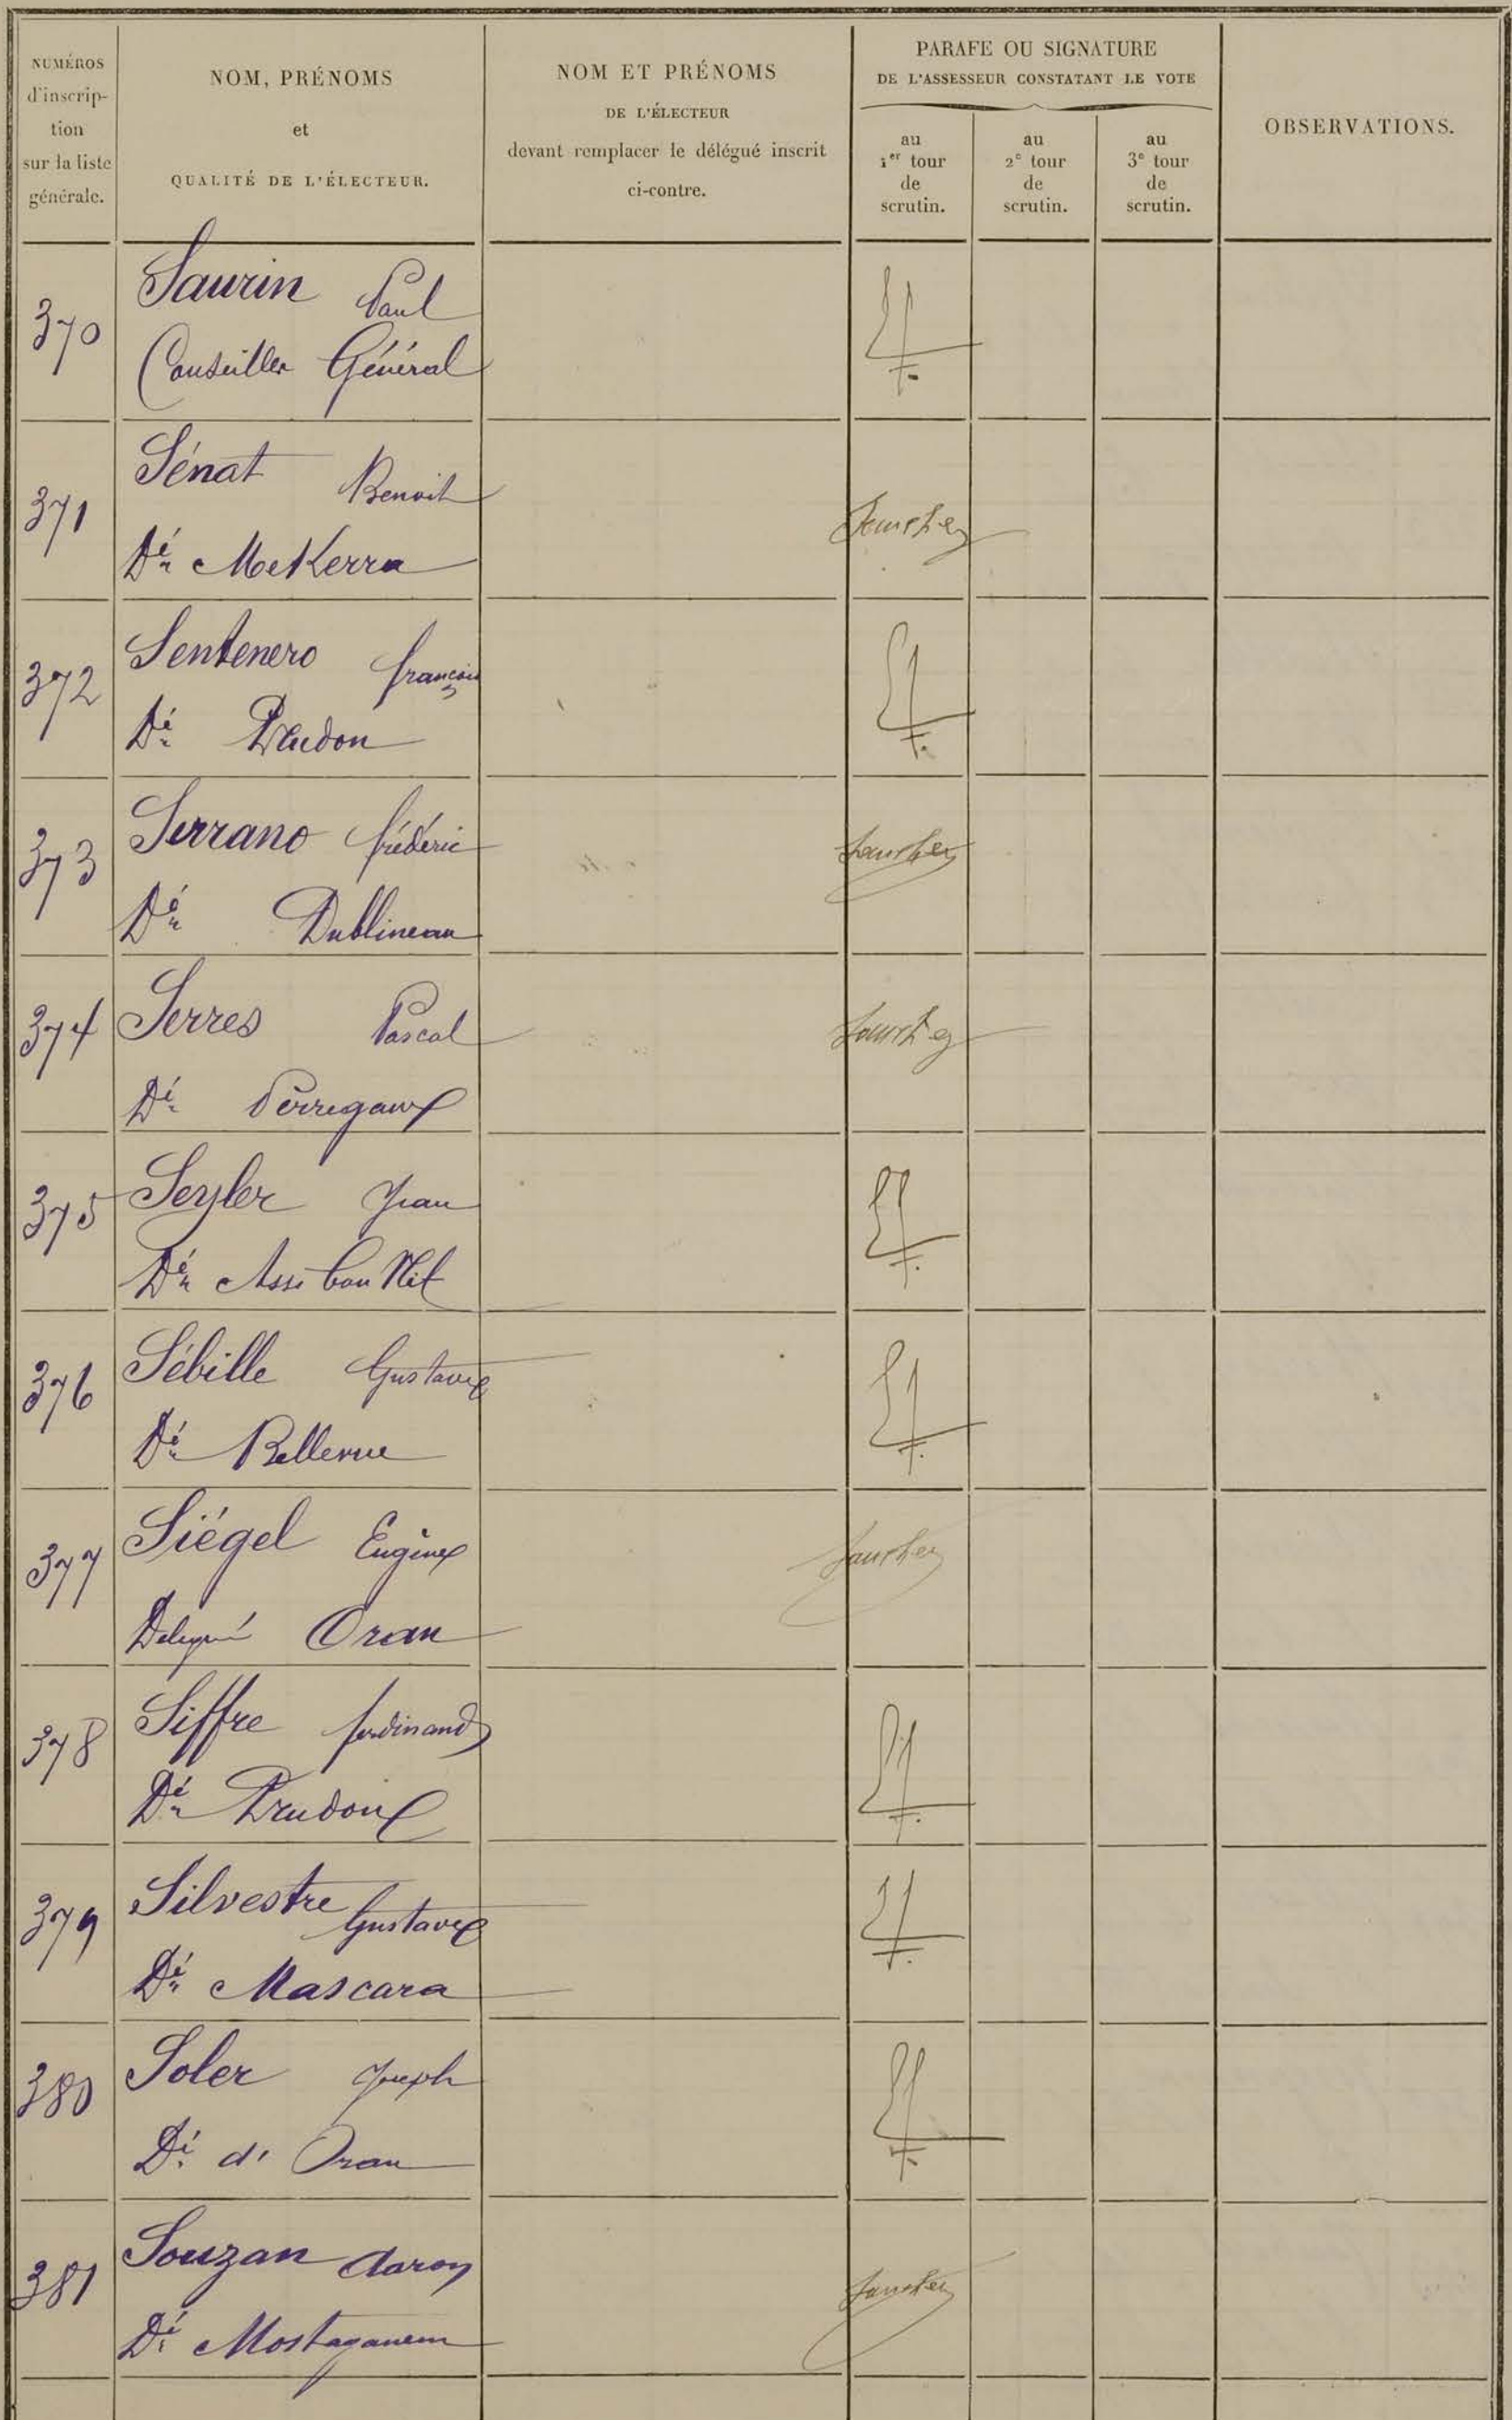 NUMÉROS
d'inscrip-
tion
sur la liste
générale.
NOM, PRÉNOMS
et
QUALITÉ DE L'ÉLECTEUR.
NOM ET PRÉNOMS
DE L'ÉLECTEUR
devant remplacer le délégué inscrit
ci-contre.
PARAFE OU SIGNATURE
DE L'ASSESSEUR CONSTATANT LE VOTE
au
1er tour
de
scrutin.
au
2e tour
de
scrutin.
au
3e tour
de
scrutin.
OBSERVATIONS.
370 Saurin Paul
Conseiller Général
371 Sénat Benoit
Dé MeKerra
372 Sentenero françois
Dé Prudon
373 Serrano frédéric
Dé Dublineau
374 Serres Pascal
Dé Perregaux
375 Seyler Jean
Dé Assi bou Nif
376 Sébille Gustave
Dé Bellevue
377 Siégel Eugène
Délégué Oran
378 Siffre ferdinand
Dé Prudon
379 Silvestre Gustave
Dé Mascara
380 Soler Joseph
Dé d'Oran
381 Souzan Aaron
Dé Mostaganem